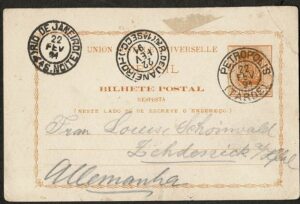 UNION POSTALE UNIVERSELLE
BRAZIL
BILHETE POSTAL
RESPOSTA
(NESTE LADO SÓ SE ESCREVE O ENDEREÇO)
RIO DE JANEIRO
22
FEV
4ª E. NOITE
RIO DE JANEIRO
22
FEV
PETROPOLIS
TARDE
Frau Louise Schönwald
Zehdenick a/Havel
Allemanha